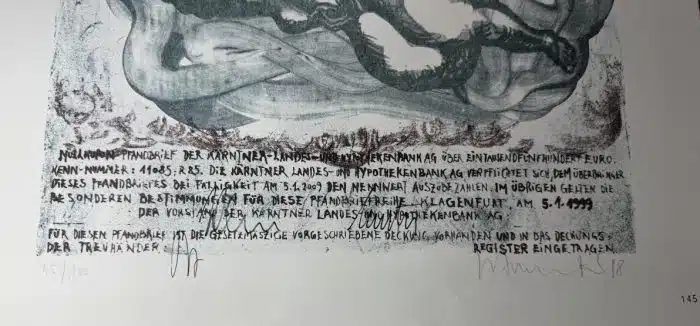 NULLKUPON-PFANDBRIEF DER KÄRNTNER-LANDES-UND HYPOTHEKENBANK AG ÜBER EINTAUSENDFÜNFHUNDERT EURO.
KENN-NUMMER: 11085-R25. DIE KÄRNTNER LANDES- UND HYPOTHEKENBANK AG VERPFLICHTET SICH, DEM ÜBERBRINGER
DIESES PFANDBRIEFES BEI FÄLLIGKEIT AM 5.1.2009 DEN NENNWERT AUSZUBEZAHLEN. IM ÜBRIGEN GELTEN DIE
BESONDEREN BESTIMMUNGEN FÜR DIESE PFANDBRIEFREIHE - KLAGENFURT, AM 5.1.1999
DER VORSTAND DER KÄRNTNER LANDES- UND HYPOTHEKENBANK AG
FÜR DIESEN PFANDBRIEF IST DIE GESETZMÄSZIGE VORGESCHRIEBENE DECKUNG VORHANDEN UND IN DAS DECKUNGS-
DER TREUHÄNDER: REGISTER EINGETRAGEN.
98
145